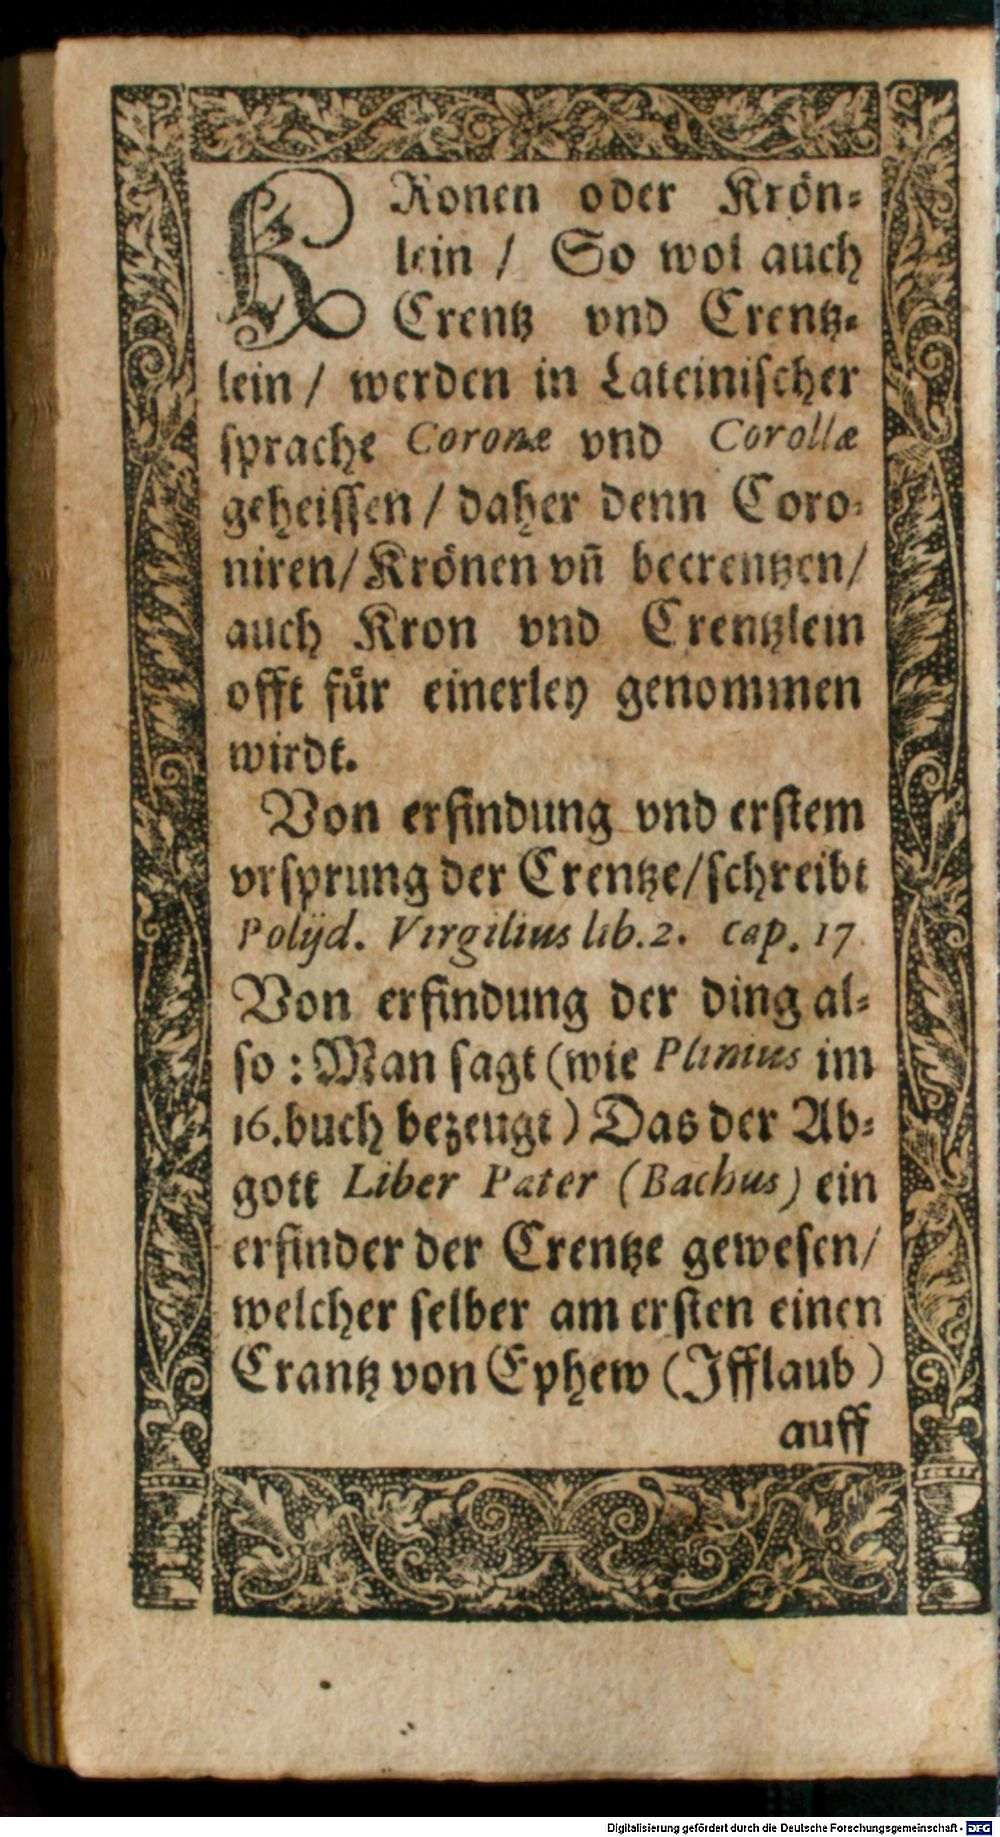 KRonen oder Krön-
lein / So wol auch
Crentz vnd Crentz-
lein / werden in Lateinischer
sprache Coronæ vnd Corollæ
geheissen / daher denn Coro-
niren / Krönen vñ becrentzen /
auch Kron vnd Crentzlein
offt für einerley genommen
wirdt.
Von erfindung vnd erstem
vrsprung der Crentze / schreibt
Polijd. Virgilius lib. 2. cap. 17
Von erfindung der ding al-
so : Man sagt (wie Plinius im
16. buch bezeugt) Das der Ab-
gott Liber Pater (Bachus) ein
erfinder der Crentze gewesen /
welcher selber am ersten einen
Crantz von Ephew (Ifflaub)
auff
Digitalisierung gefördert durch die Deutsche Forschungsgemeinschaft - DFG